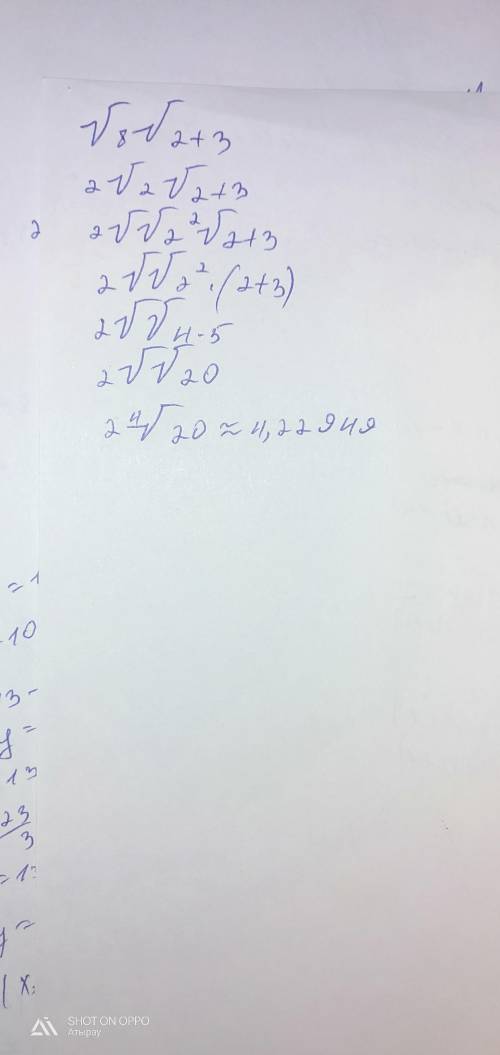 √8√2+3
2√2√2+3
2 2√√2²√2+3
2√√2²·(2+3)
2√√4·5
2√√20
2⁴√20≈4,22949
=1
10
3-
y=
13
23
3
=1
y=
(x
SHOT ON OPPO
Атырау